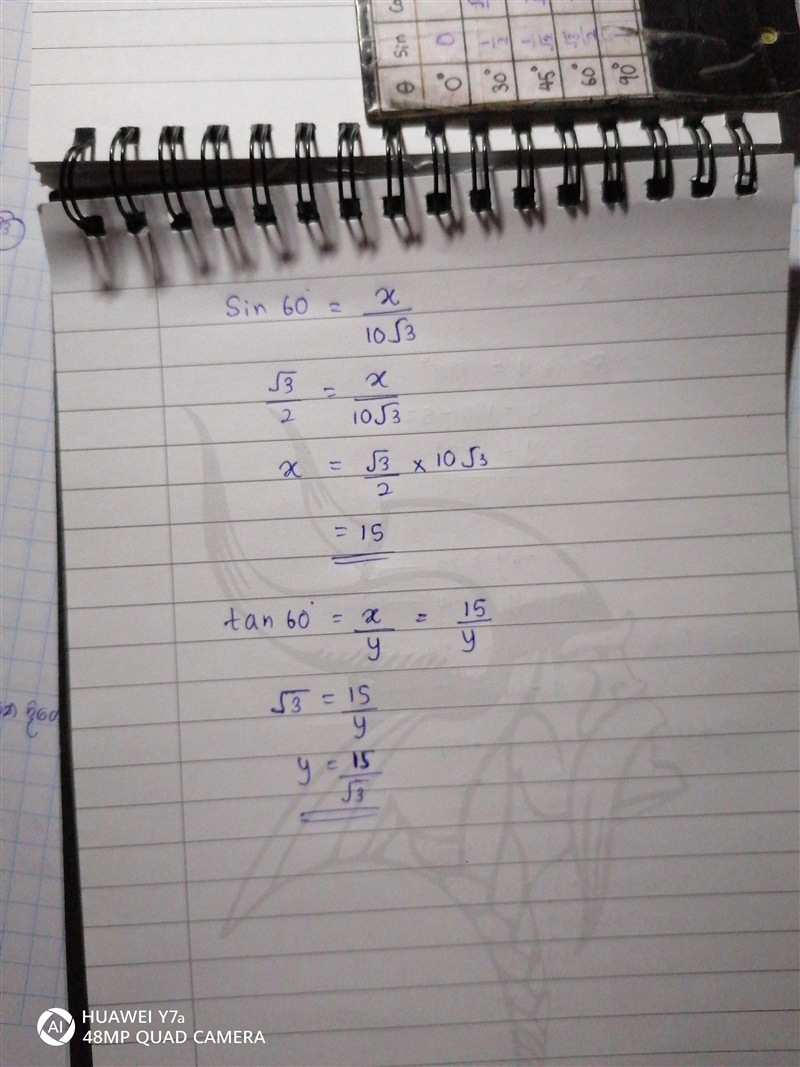 θ Sin
0° 0
30° 1/2
45° 1/√2
60° √3/2
90° 1
Sin 60° = x/10√3
√3/2 = x/10√3
x = √3/2 × 10√3
= 15
tan 60° = x/y = 15/y
√3 = 15/y
y = 15/√3
AI HUAWEI Y7a
48MP QUAD CAMERA